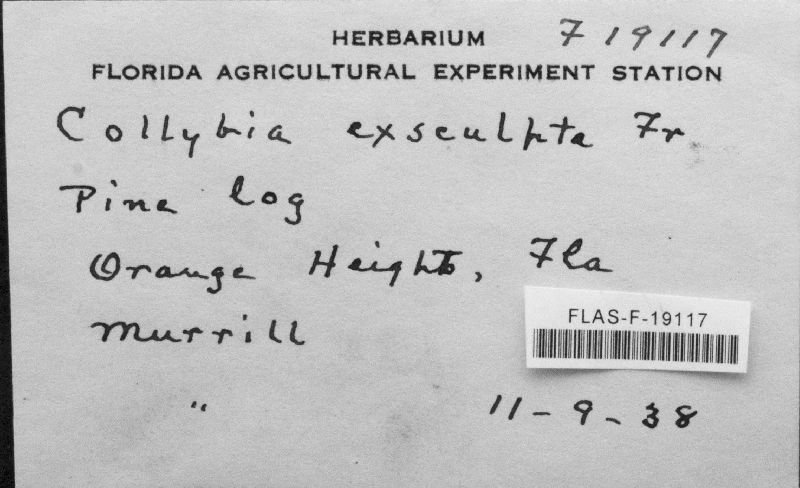 HERBARIUM F 19117
FLORIDA AGRICULTURAL EXPERIMENT STATION
Collybia exsculpta Fr
Pine log
Orange Heights, Fla
FLAS-F-19117
Murrill
" 11-9-38